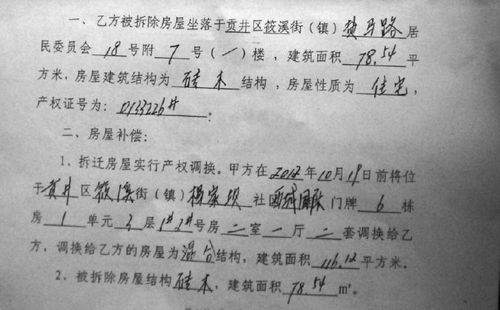 一、乙方被拆除房屋坐落于贡井区筱溪街(镇)黄马路居
民委员会18号附7号(一)楼，建筑面积78.54平
方米，房屋建筑结构为砖木结构，房屋性质为住宅，
产权证号为：0133226#。
二、房屋补偿：
1、拆迁房屋实行产权调换。甲方在2012年10月19日前将位
于贡井区筱溪街(镇)杨家坝社区 门牌6栋
房1单元3层1#2#号房二室一厅二套调换给乙
方，调换给乙方的房屋为混合结构，建筑面积116.12平方米。
2、被拆除房屋结构砖木，建筑面积78.54㎡。